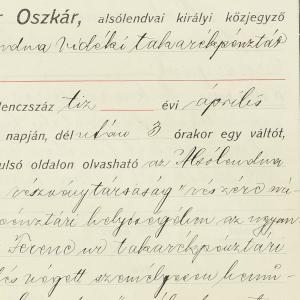 r Oszkár, alsólendvai királyi közjegyző
vidéki takarékpénztár
lenczszáz tiz évi április
napján, dél után 3 órakor egy váltót,
ulsó oldalon olvasható az Alsólendva
részvénytársaság" részére
pénztári helyiségében az ugyan
Ferenc ur takarékpénztári
és végett személyesen